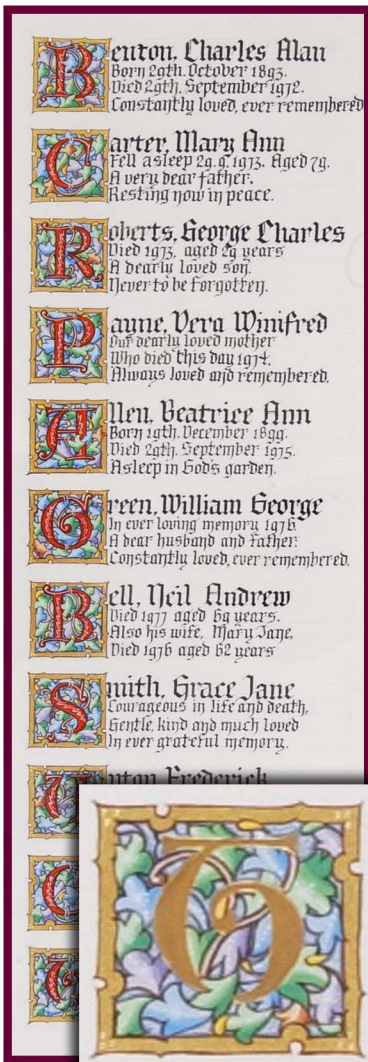 Benton, Charles Alan
Born 29th. October 1893.
Died 29th. September 1972.
Constantly loved, ever remembered
Carter, Mary Ann
Fell asleep 29.9.1973. Aged 79.
A very dear father.
Resting now in peace.
Roberts, George Charles
Died 1973, aged 29 years
A dearly loved son.
Never to be forgotten.
Payne, Vera Winifred
Our dearly loved mother
Who died this day 1974.
Always loved and remembered.
Allen, Beatrice Ann
Born 19th. December 1899.
Died 29th. September 1975.
Asleep in God's garden.
Green, William George
In ever loving memory 1976
A dear husband and father.
Constantly loved, ever remembered.
Bell, Neil Andrew
Died 1977 aged 69 years.
Also his wife, Mary Jane,
Died 1976 aged 62 years
Smith, Grace Jane
Courageous in life and death,
Gentle, kind and much loved
In ever grateful memory.
Frederick